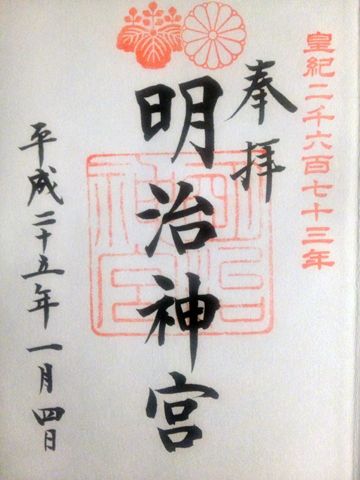 皇紀二千六百七十三年
奉拝
明治神宮
平成二十五年一月四日
明治神宮